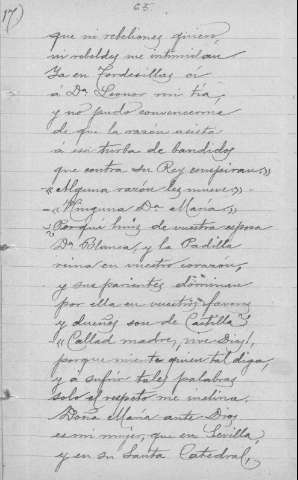 17)
65.
que ni rebeliones quiero,
ni rebeldes me intimidan
Ya en Tordesillas oí
á Dª Leonor mi tía,
y no pudo convencerme
de que la razon asista
á esa turba de bandidos
que contra su Rey conspiran,»
«Alguna razón les mueve.»
-«Ninguna Dª María.»
-¿Porqué huis de vuestra esposa
Dª Blanca, y la Padilla
reina en vuestro corazon,
y sus parientes dominan
por ella en vuestros favores
y dueños son de Castilla?
«Callad madre, vive Dios!,
porque miente quien tal diga,
y á sufrir tales palabras
solo el respeto me inclina.
Doña María ante Dios
es mi mujer, que en Sevilla,
y en su Santa Catedral,